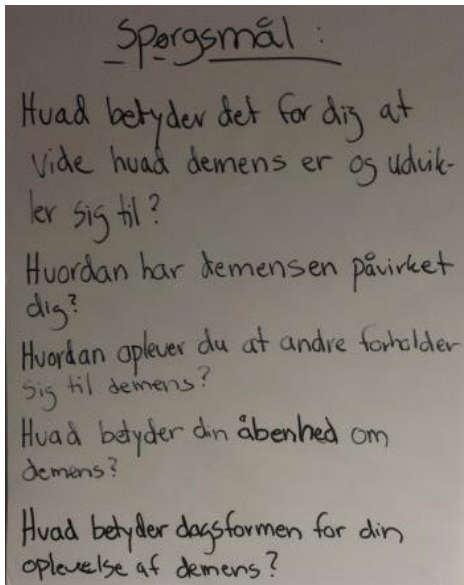 Spørgsmål :
Hvad betyder det for dig at
vide hvad demens er og udvik-
ler sig til?
Hvordan har demensen påvirket
dig?
Hvordan oplever du at andre forholder
sig til demens?
Hvad betyder din åbenhed om
demens?
Hvad betyder dagsformen for din
oplevelse af demens?